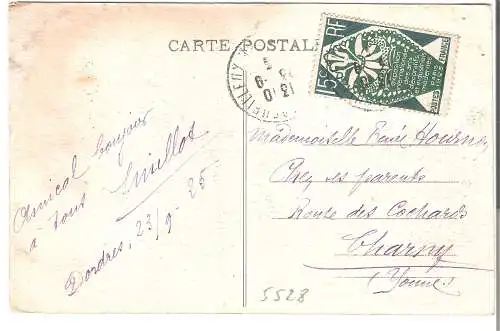 CARTE POSTALE
15c RF
POSTES FRANCE
Amical bonjour
à tous
Dordres, 23/9-25
Mademoiselle Renée
Chez ses parents
Route des Cochards
Charny
(Yonne)
5528